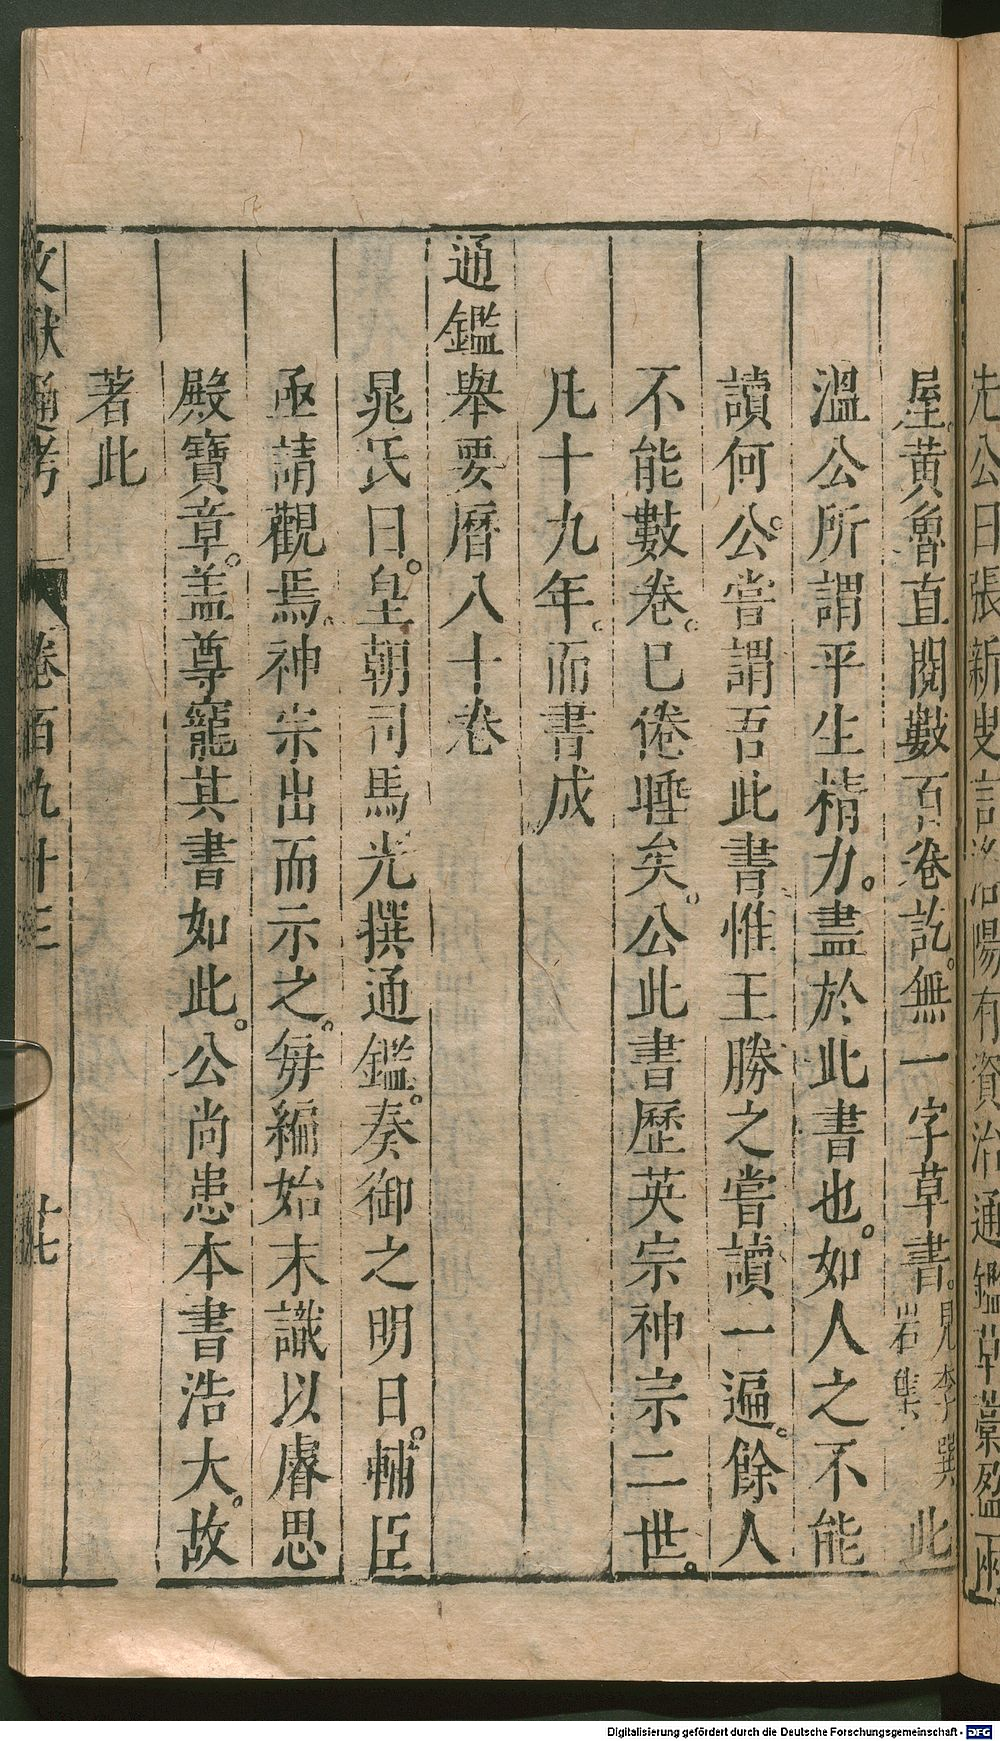 先公曰張新叟言洛陽有資治通鑑草藁盈兩
屋。黃魯直閱數百卷訖。無一字草書。見李巽岩集 此
溫公所謂平生精力。盡於此書也。如人之不能
讀何。公嘗謂吾此書惟王勝之嘗讀一遍。餘人
不能數卷。已倦睡矣。公此書歷英宗神宗二世。
凡十九年。而書成
通鑑舉要曆八十卷
晁氏曰。皇朝司馬光撰通鑑。奏御之明日。輔臣
亟請觀焉。神宗出而示之。每編始末識以睿思
殿寶章。盖尊寵其書如此。公尚患本書浩大。故
著此
文獻通考 卷百九十三 廿七
Digitalisierung gefördert durch die Deutsche Forschungsgemeinschaft - DFG